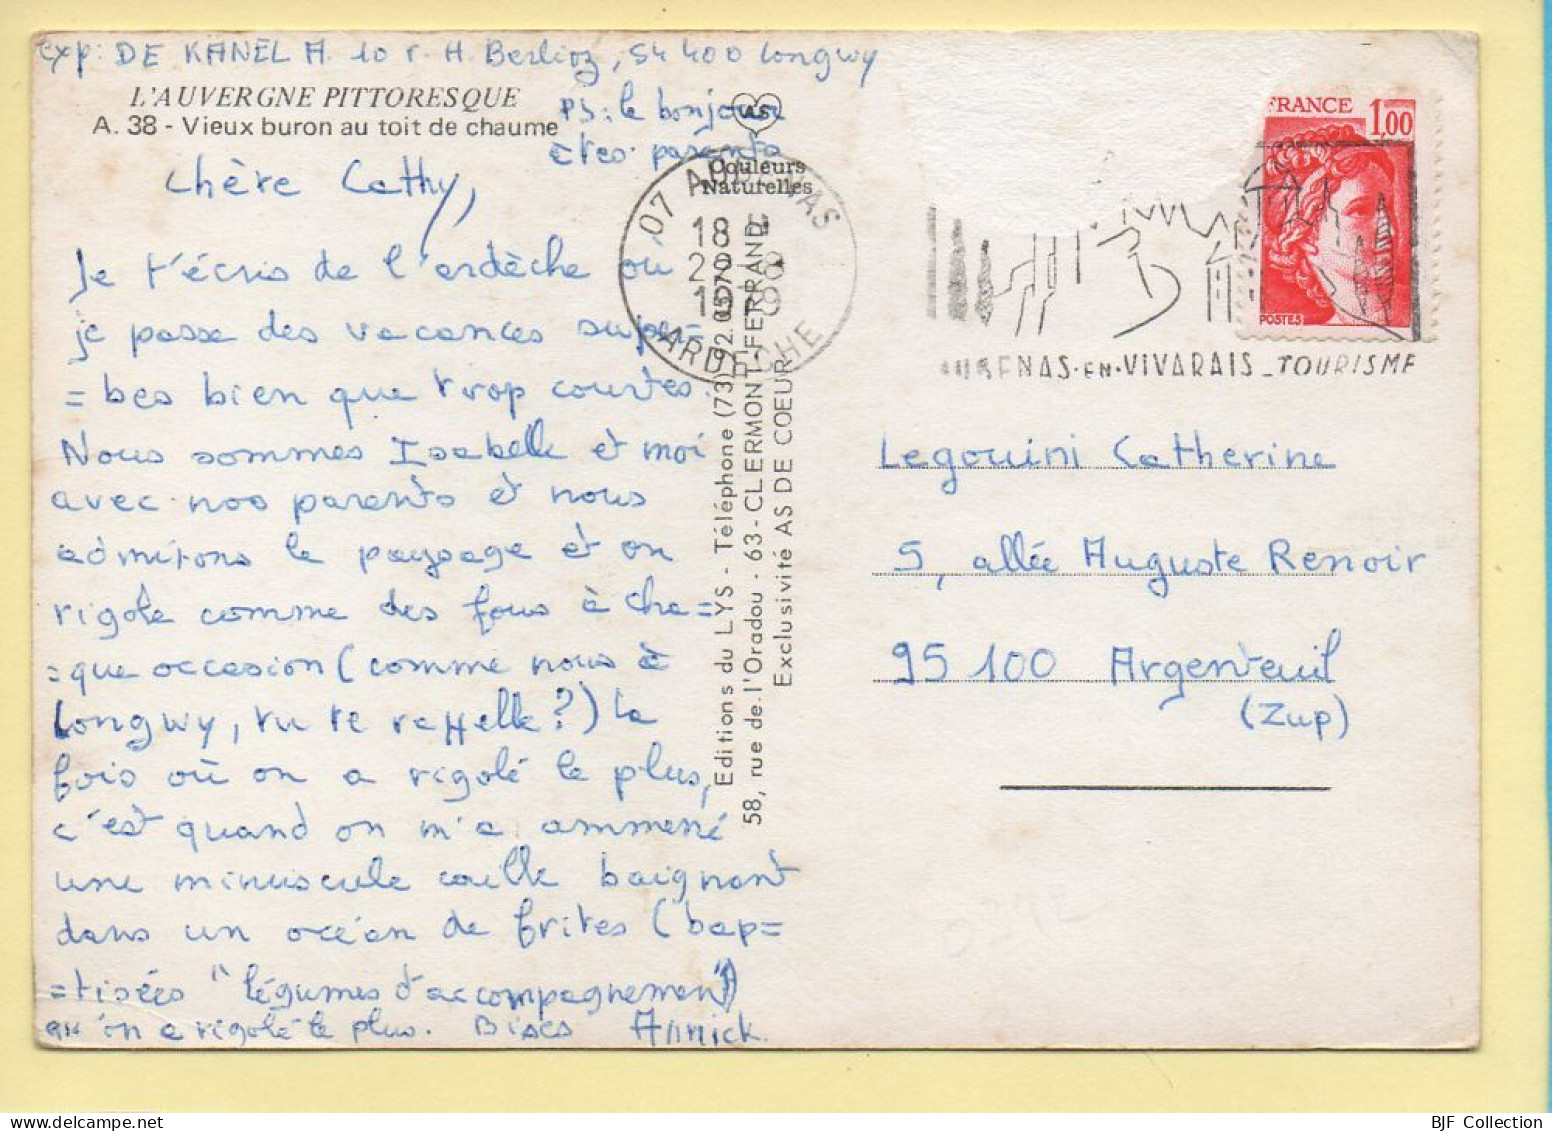 exp: DE KANEL A. 10 r. H. Berlioz, 54 400 Longwy
L'AUVERGNE PITTORESQUE
A. 38 - Vieux buron au toit de chaume
PS: le bonjour
à tes parents
AS
Couleurs
Naturelles
Chère Cathy,
Je t'écris de l'ardèche où
je passe des vacances super=
=bes bien que trop courtes.
Nous sommes Isabelle et moi
avec nos parents et nous
admirons le paysage et on
rigole comme des fous à cha=
=que occasion (comme nous à
Longwy, tu te rappelle?) la
fois où on a rigolé le plus,
c'est quand on m'a ammené
une minuscule caille baignant
dans un océan de frites (bap=
=tisées "légumes d'accompagnement")
qu'on a rigolé le plus. Bises Annick.
Editions du LYS - Téléphone (73) 92.05.72
58, rue de l'Oradou - 63 - CLERMONT-FERRAND
Exclusivité AS DE COEUR
07 AUBENAS
18 H
22 8
1979
ARDECHE
FRANCE 1,00
POSTES
AUBENAS-EN-VIVARAIS_TOURISME
Legouini Catherine
5, allée Auguste Renoir
95 100 Argenteuil
(Zup)
BJF Collection